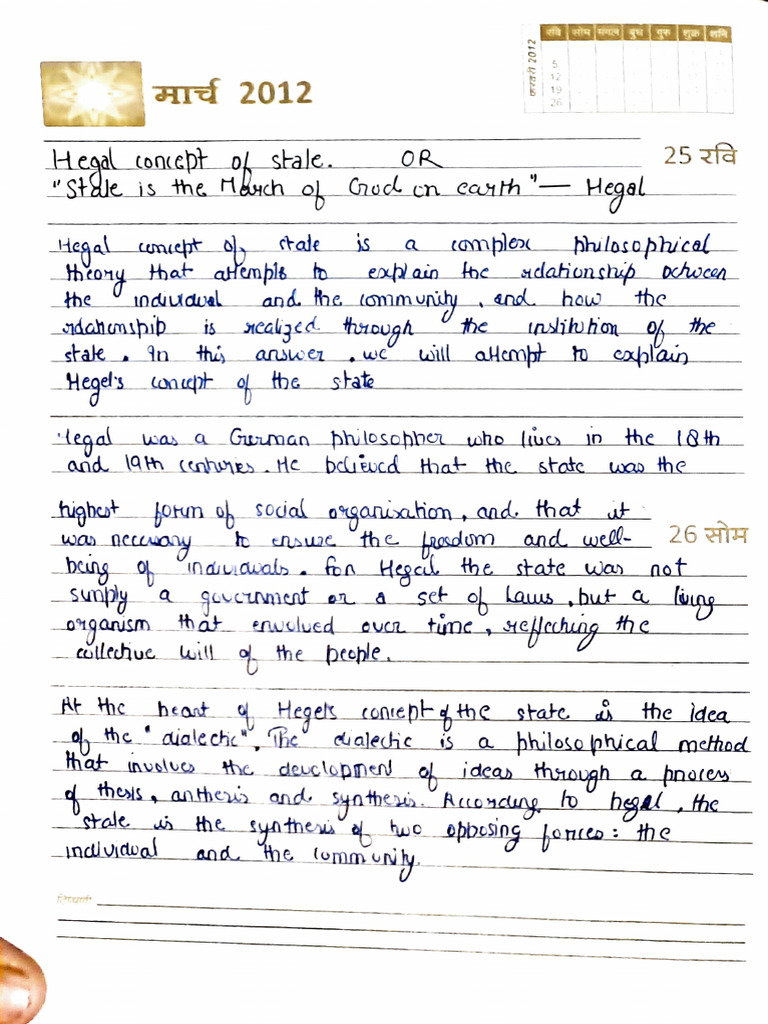 फरवरी 2012
रवि सोम मंगल बुध गुरु शुक्र शनि
5
12
19
26
मार्च 2012
25 रवि
Hegal concept of state. OR
"State is the March of God on earth" — Hegal
Hegal concept of state is a complex philosophical
theory that attempts to explain the relationship between
the individual and the community, and how the
relationship is realized through the institution of the
state. In this answer, we will attempt to explain
Hegel's concept of the state
Hegal was a German philosopher who lives in the 18th
and 19th centuries. He believed that the state was the
highest form of social organisation, and that it
was necessary to ensure the freedom and well-
26 सोम
being of individuals. For Hegal the state was not
simply a government or a set of laws, but a living
organism that envolved over time, reflecting the
collective will of the people.
At the heart of Hegel's concept of the state is the idea
of the "dialectic". The dialectic is a philosophical method
that involves the development of ideas through a process
of thesis, anthesis and synthesis. According to hegel, the
state is the synthesis of two opposing forces: the
individual and the community.
टिप्पणी